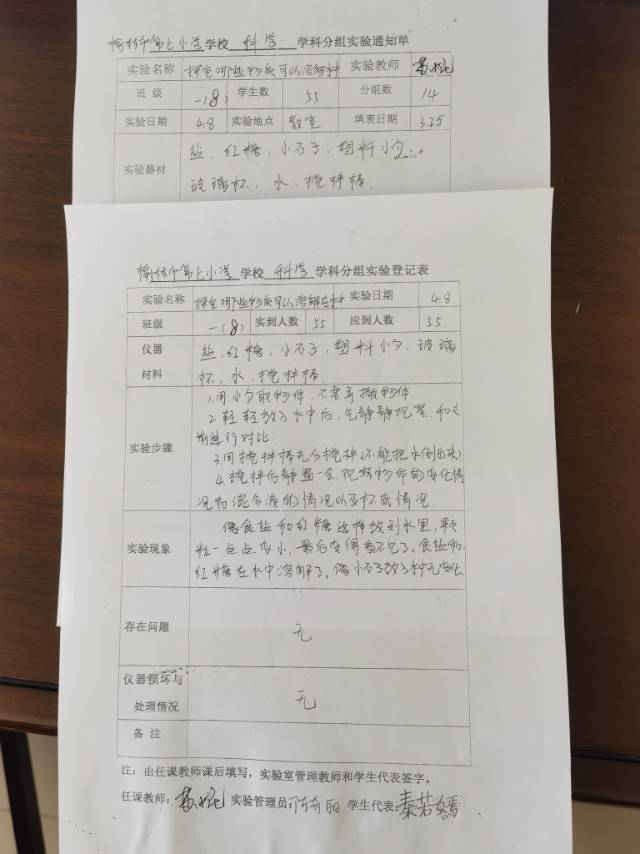 榆林市第七小学学校 科学 学科分组实验通知单
实验名称 探究哪些物质可以溶解 实验教师
班级 一(8) 学生数 55 分组数 14
实验日期 4.8 实验地点 教室 填表日期 3.25
实验器材 盐、红糖、小石子、塑料小勺
玻璃杯、水、搅拌棒.
榆林市第七小学 学校 科学 学科分组实验登记表
实验名称 探究哪些物质可以溶解在 实验日期 4.8
班级 一(8) 实到人数 55 应到人数 55.
仪器材料 盐、红糖、小石子、塑料小勺、玻璃
杯、水、搅拌棒.
实验步骤 1.用小勺取物体,不要弄撒物体
2.轻轻放入水中后,先静静观察,和之
前进行对比.
3.用搅拌棒充分搅拌(不能把水倒出来)
4.搅拌后静置一会,观察物体的变化情
况和混合液的情况以及杯底情况.
实验现象 像食盐和红糖这样放到水里,颗
粒一点点变小,最后变得看不见了,食盐和
红糖在水中溶解了,像小石子放入水中无变化.
存在问题 无
仪器损坏与处理情况 无
备注
注:由任课教师课后填写,实验室管理教师和学生代表签字。
任课教师: 实验管理员: 学生代表:秦若嫣